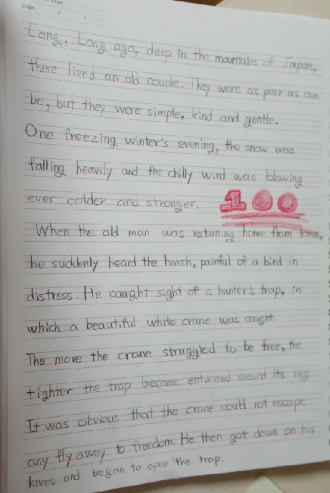 Long, Long ago, deep in the mountains of Japan,
there lived an old couple. They were as poor as can
be, but they were simple, kind and gentle.
One freezing winter's evening, the snow was
falling heavily and the chilly wind was blowing
ever colder and stronger.
100
When the old man was returning home from town,
he suddenly heard the harsh, painful of a bird in
distress. He caught sight of a hunter's trap, in
which a beautiful white crane was caught.
The more the crane struggled to be free, the
tighter the trap became entwined around its leg.
It was obvious that the crane could not escape
fly away to freedom. He then got down on his
knees and began to open the trap.